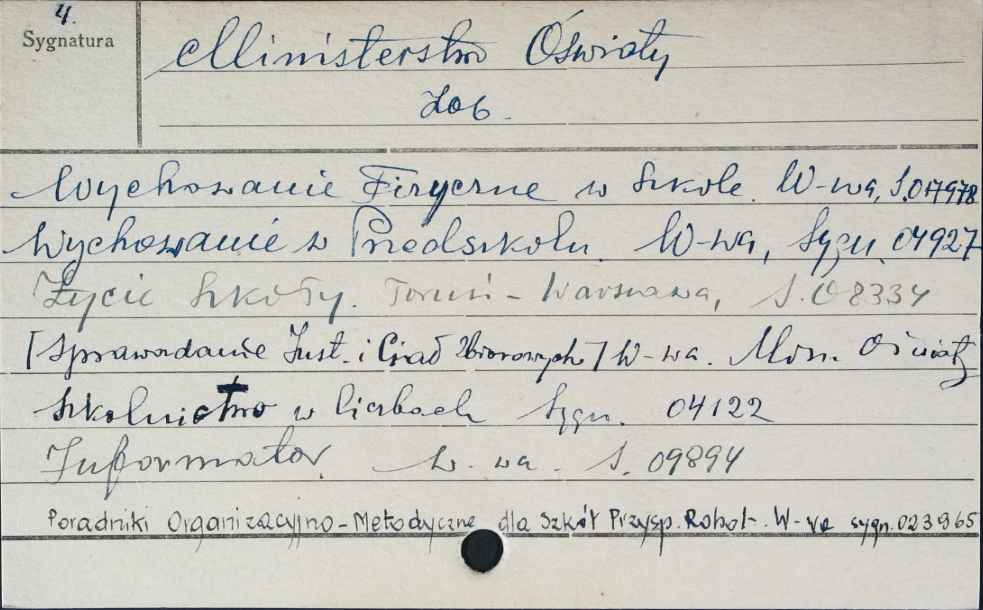 4.
Sygnatura
Ministerstwo Oświaty
Zob.
Wychowanie Fizyczne w Szkole. W-wa, S.017978
Wychowanie w Przedszkolu. W-wa, Sygn. 04927
Życie Szkoły. Toruń - Warszawa, S. 08334
[Sprawozdanie Inst. i Ciał Zbiorowych] W-wa. Min. Oświaty
Szkolnictwo w liczbach Sygn. 04122
Informator. W-wa. S. 09894
Poradniki Organizacyjno-Metodyczne dla Szkół Przysp. Robot. W-wa sygn. 023965